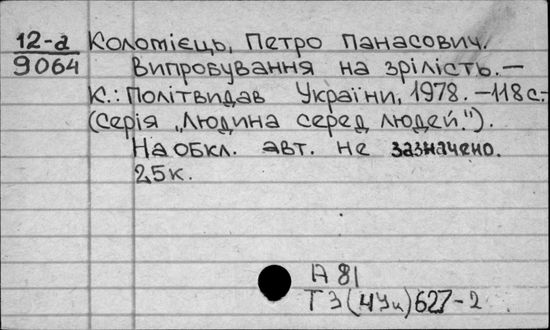 12-а
9064
Коломієць, Петро Панасович.
Випробування на зрілість. —
К.: Політвидав України, 1978. —118 с.-
(Серія „Людина серед людей.").
На обкл. авт. не зазначено.
25к.
А 81
Т3(4Ук)627-2